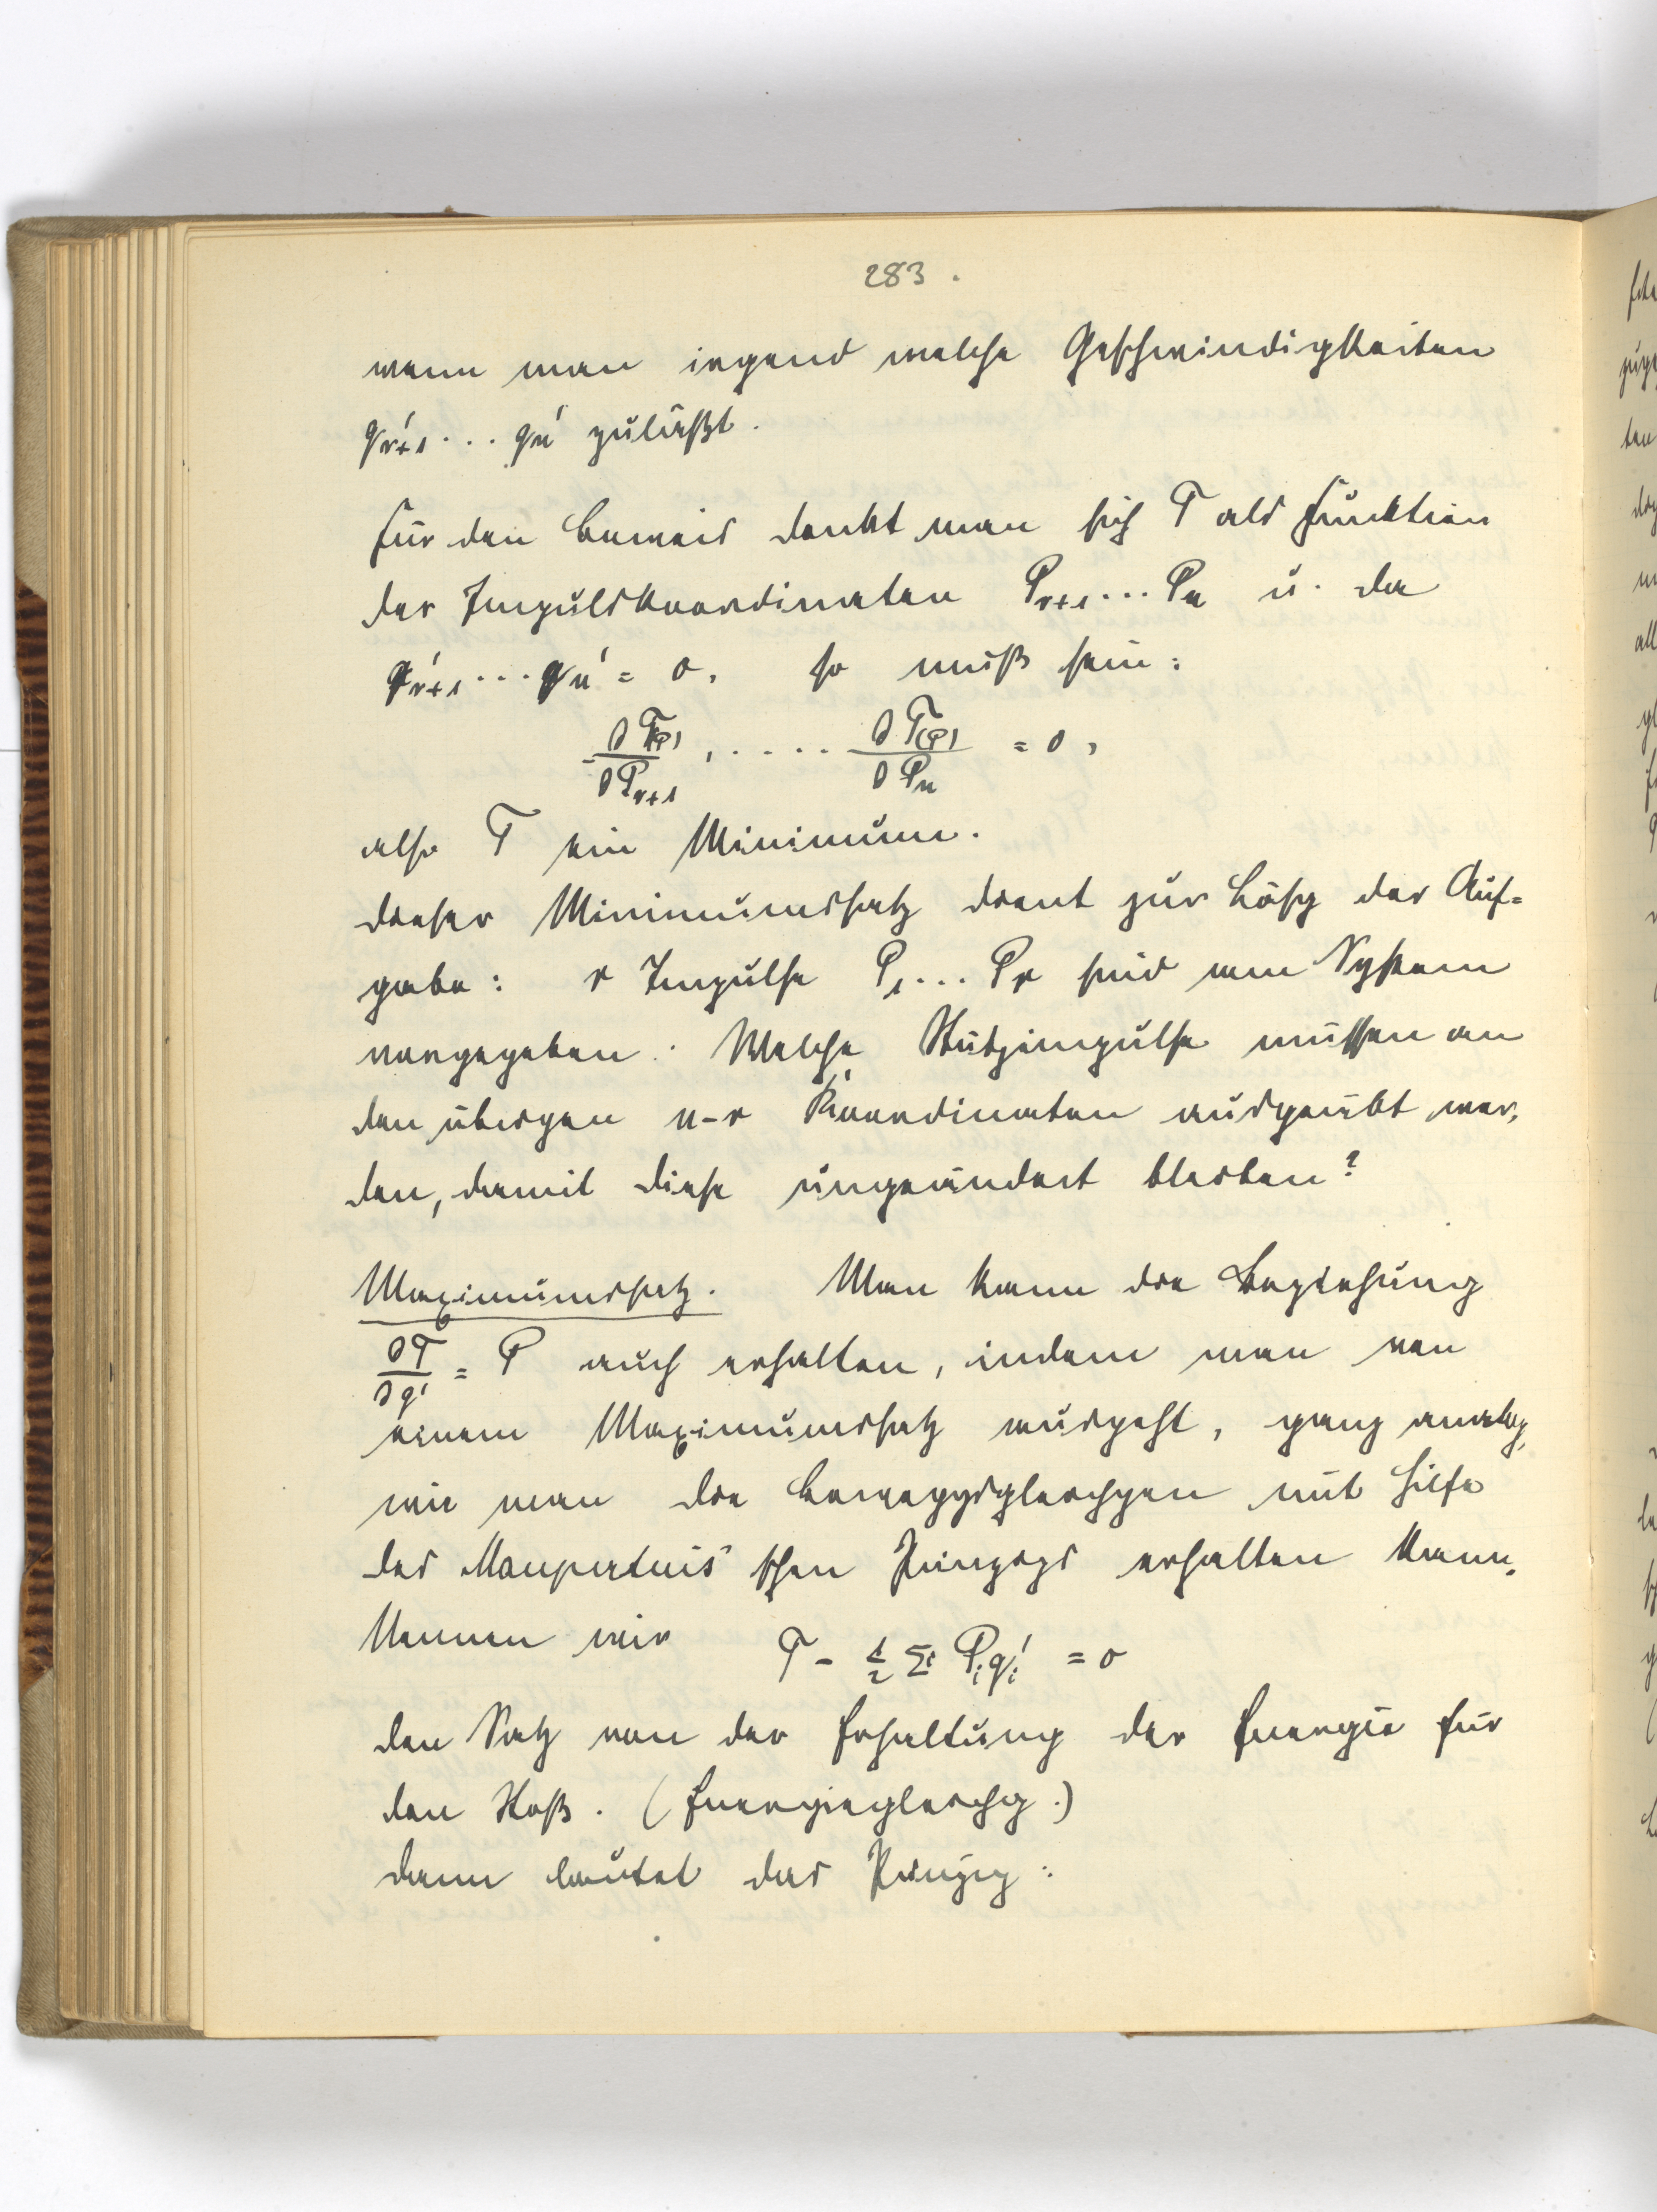 283.
wenn man irgend welche Geschwindigkeiten
q'ᵣ₊₁ ... qₙ' zuläßt.
Für den Beweis denkt man sich T als Funktion
der Impulskoordinaten Pᵣ₊₁ ... Pₙ u. da
q'ᵣ₊₁ ... qₙ' = 0, so muß sein:
∂T(P)/∂Pᵣ₊₁, ..... ∂T(P)/∂Pₙ = 0,
also T ein Minimum.
Dieser Minimumssatz dient zur Lösg der Auf=
gabe: r Impulse P₁ ... Pᵣ sind am System
vorgegeben. Welche Stützimpulse müssen an
den übrigen n-r Koordinaten ausgeübt wer-
den, damit diese ungeändert bleiben?
Maximumssatz. Man kann die Beziehung
∂T/∂q' = P auch erhalten, indem man von
einem Maximumssatz ausgeht, ganz analog,
wie man die Beweggsgleichgen mit Hilfe
des Maupertuis'schen Prinzips erhalten kann.
Nennen wir T - ½ Σ Pᵢqᵢ' = 0
den Satz von der Erhaltung der Energie für
den Stoß. (Energiegleichg.)
Dann lautet das Prinzip: